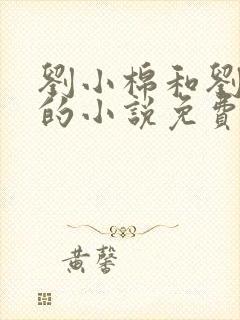 劉小棉和劉
的小說免費
黃馨